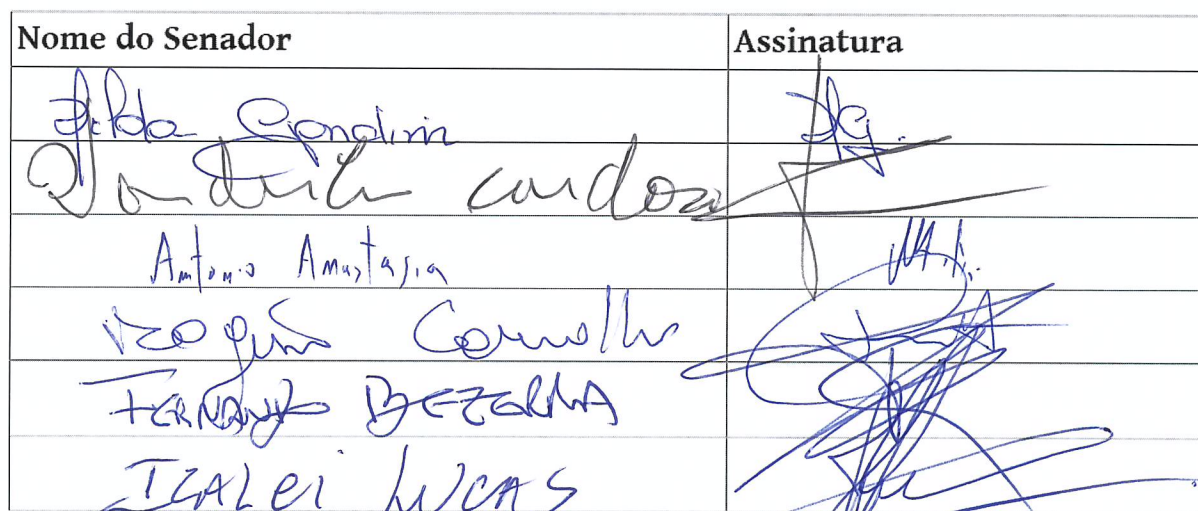 Nome do Senador Assinatura
Nilda Gondim
Vanderlan Cardoso
Antonio Anastasia
Rogério Carvalho
FERNANDO BEZERRA
IZALCI LUCAS